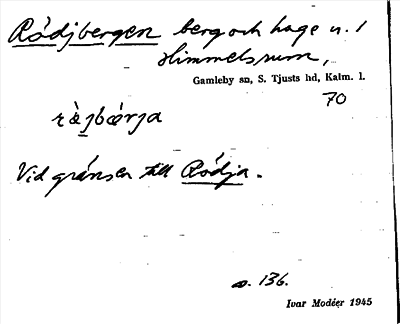 Rödjbergen berg och hage n. 1
Himmelsrum,
Gamleby sn, S. Tjusts hd, Kalm. l.
70
Vid gränsen till Rödja.
s. 136.
Ivar Modéer 1945